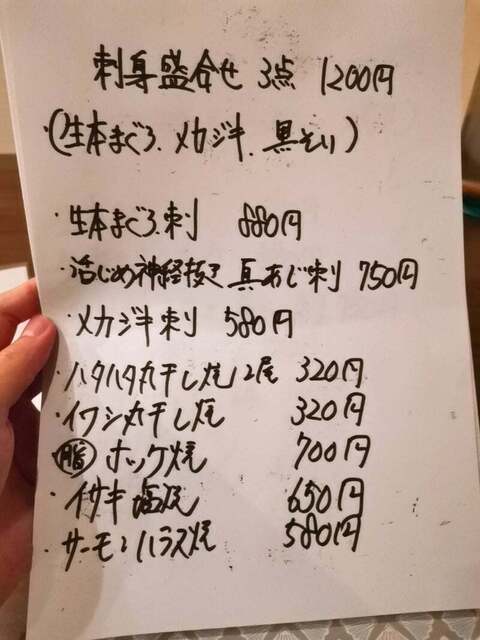 刺身盛合せ 3点 1200円
(生本まぐろ、メカジキ、黒そい)
・生本まぐろ刺 880円
・活じめ神経抜き 真あじ刺 750円
・メカジキ刺 580円
・ハタハタ丸干し焼 2尾 320円
・イワシ丸干し焼 320円
脂 ホッケ焼 700円
・イサキ塩焼 650円
・サーモンハラス焼 580円